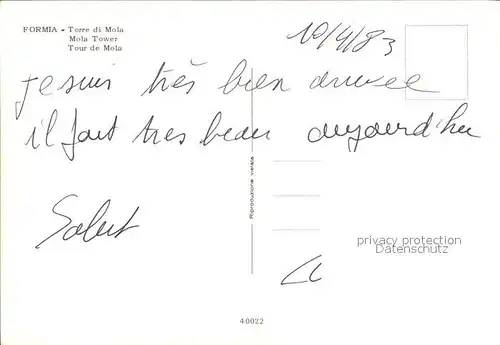 FORMIA - Torre di Mola
Mola Tower
Tour de Mola
10/4/83
je suis très bien arrivée
il fait tres beau aujourd'hui
Salut
Riproduzione vietata
privacy protection
Datenschutz
40022